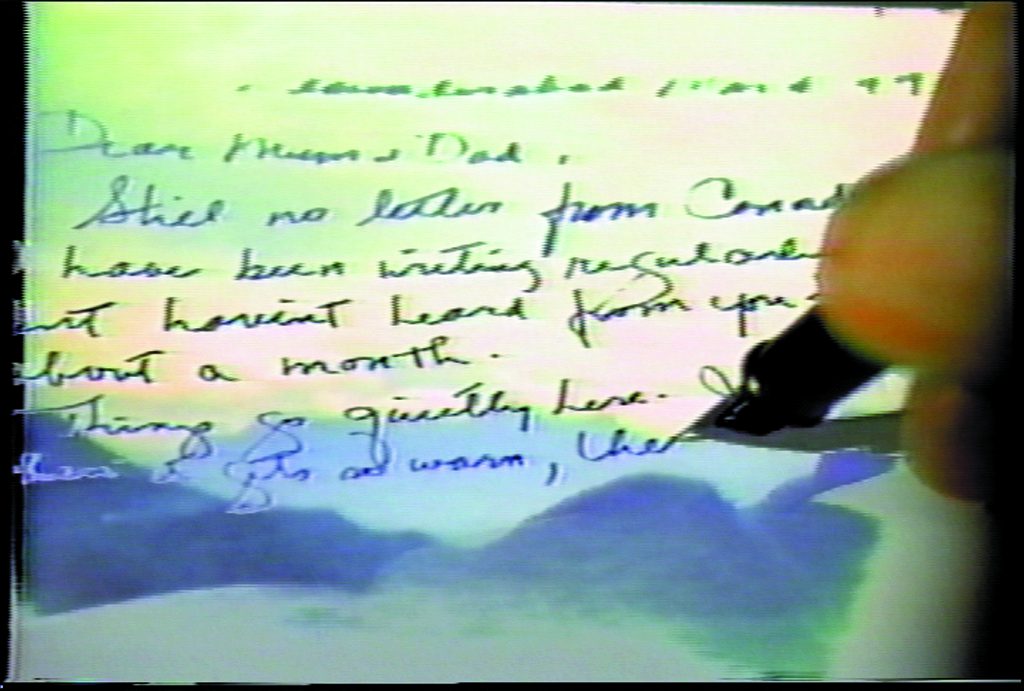 Dear Mum & Dad,
Still no letter from Canad
have been writing regular
haven't heard from you
about a month.
Things go quietly here. I
it gets so warm, the